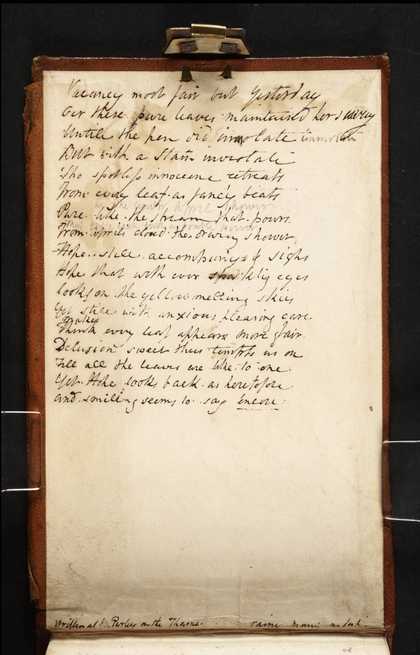 Vacancy most fair but yesterday
Oer these pure leaves maintained her sway
Untill the pen did
But with a stain inviolate
The spotless innocence retreats
From every leaf as fancy beats
Pure like the stream that pours
From April's cloud the showers
Hope still accompanyd sighs
Hope that with ever sparkling eyes
looks on the yellow melting skies
Yet still with anxious pleasing care
Makes
Think every leaf appears more fair
Delusion sweet thus tempts us on
Till all the leaves are like to one
Yet Hope looks back as heretofore
and smiling seems to say encore
Written at Purley on the Thames